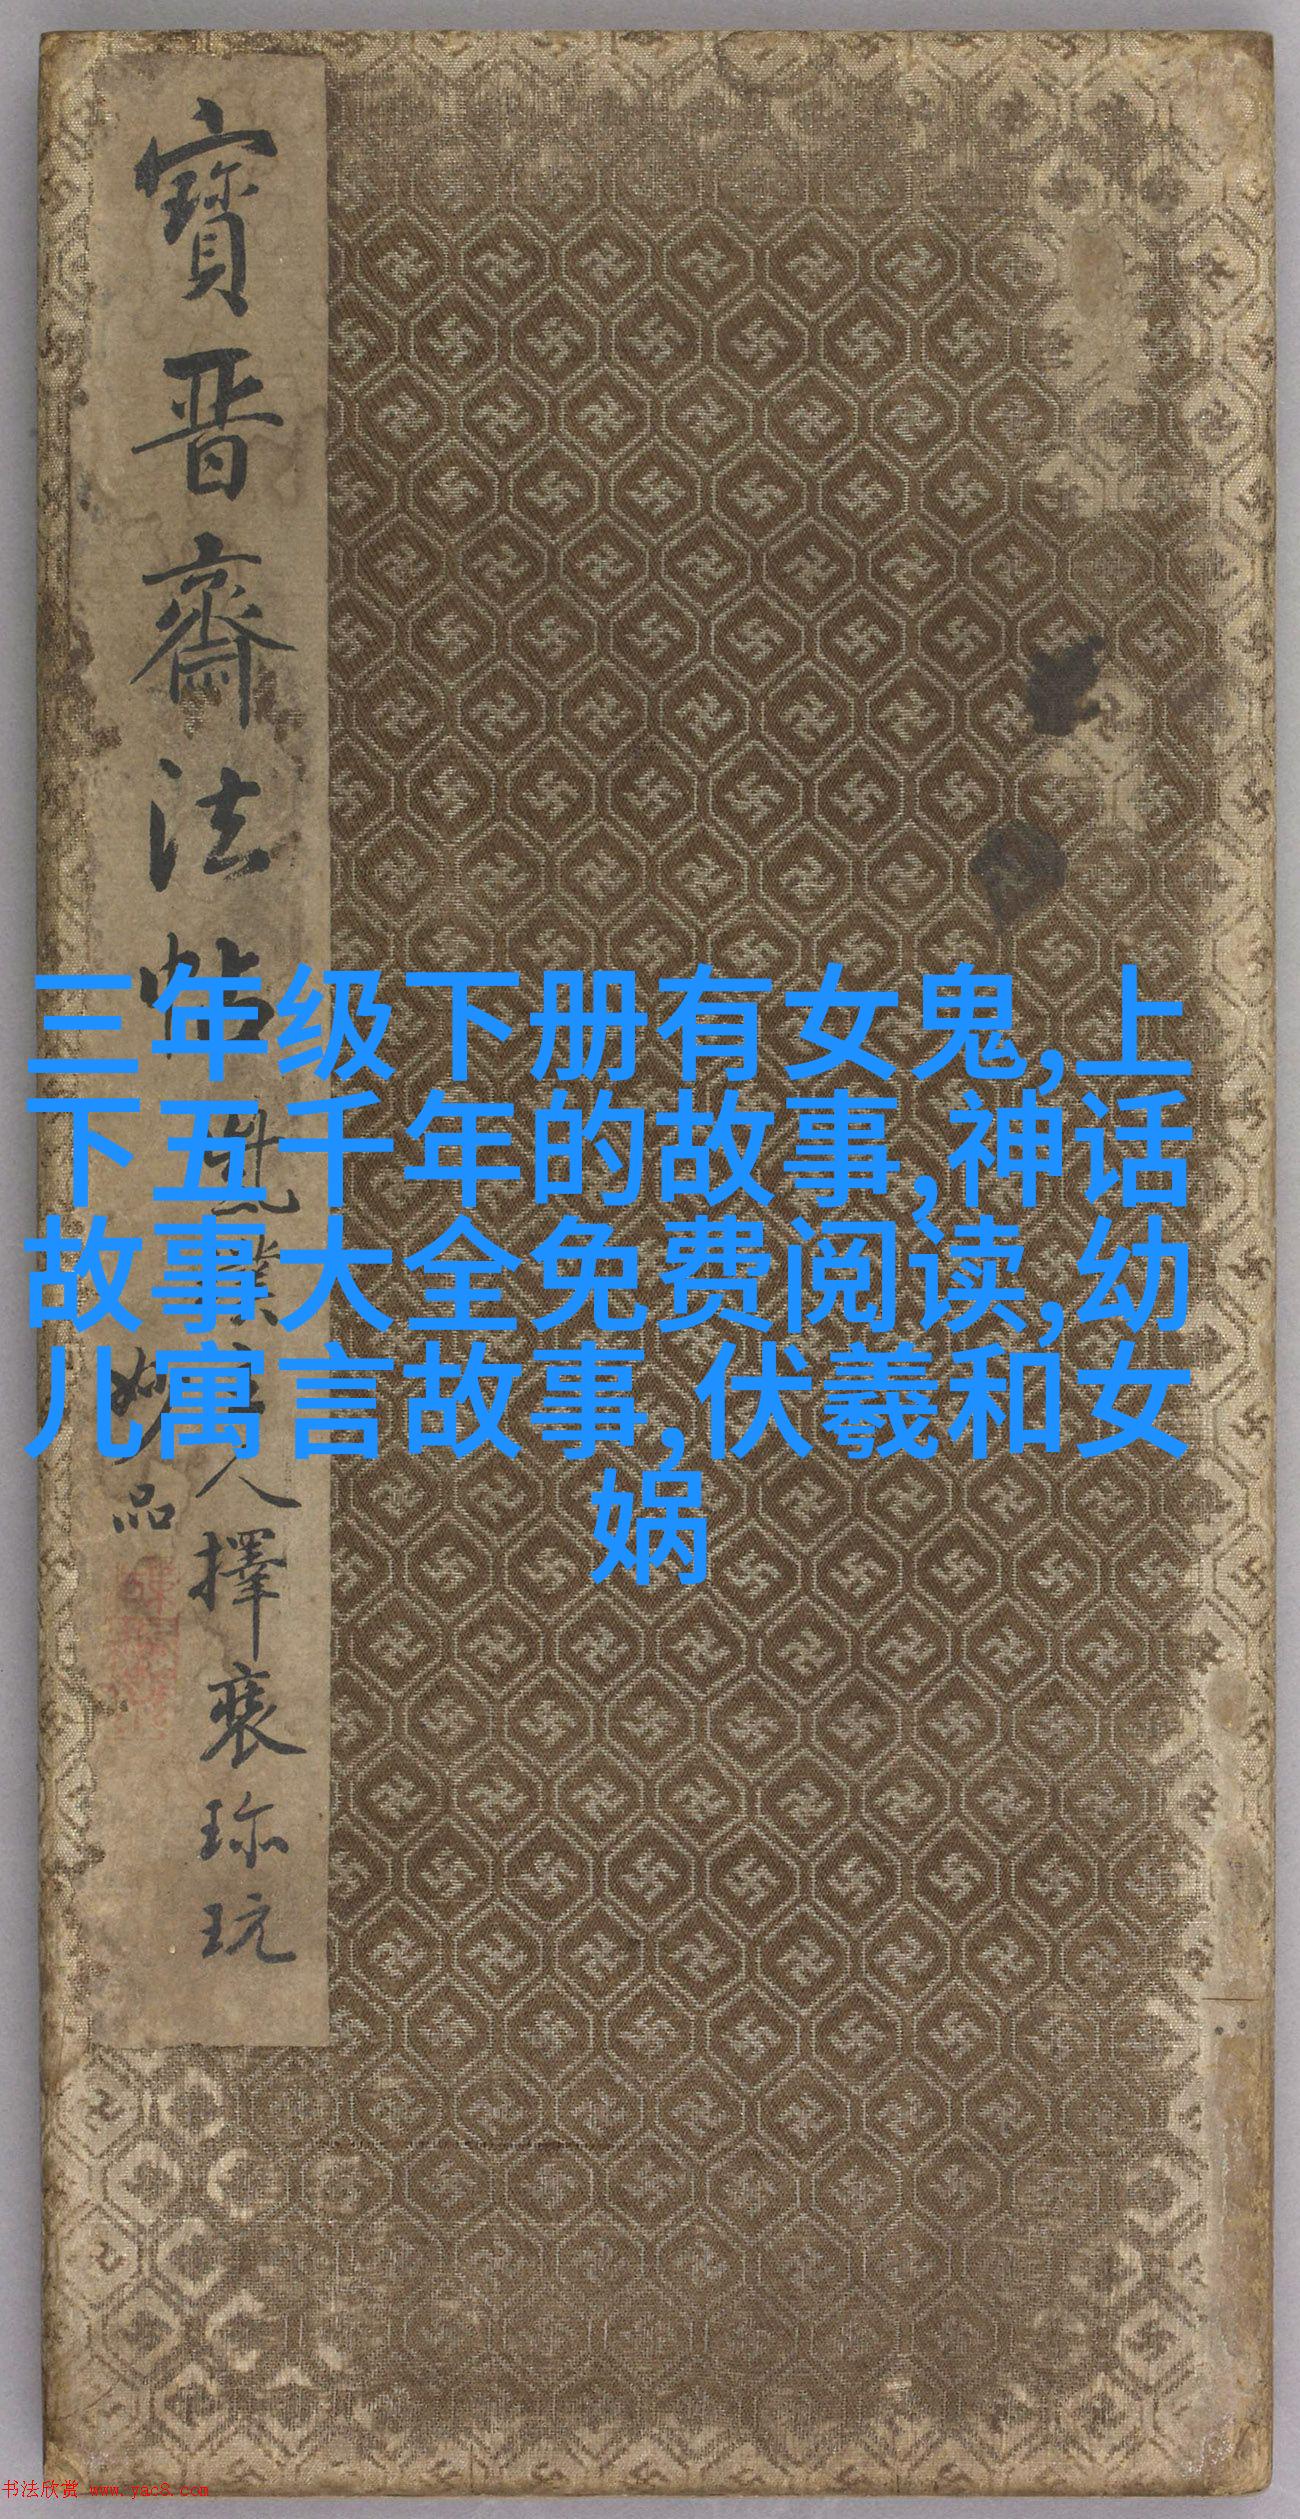 寶晋齋法帖
人擇裘珎玩
妙品
三年级下册有女鬼,上
下五千年的故事,神话
故事大全免费阅读,幼
儿寓言故事,伏羲和女
娲
书法欣赏 www.yac8.com